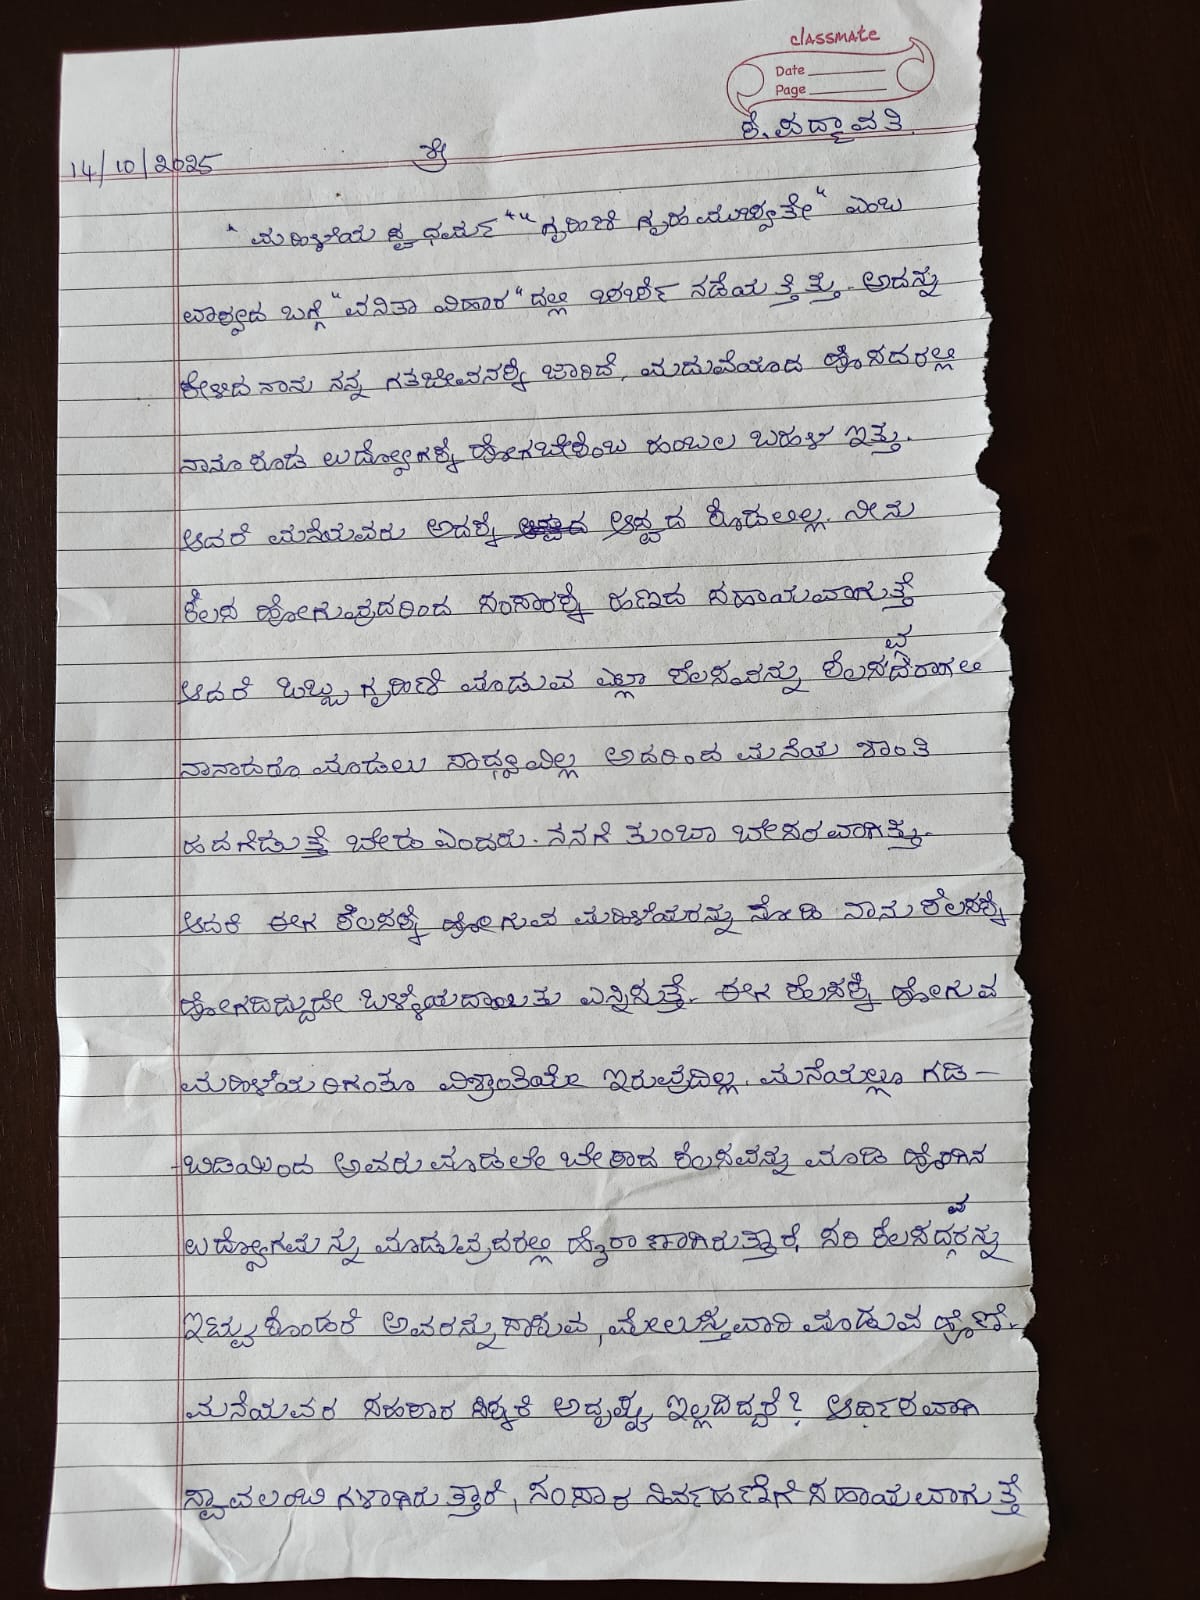 classmate
Date
Page
ಕೆ. ಪದ್ಮಾವತಿ.
14/10/2025 ಶ್ರೀ
"ಮಹಿಳೆಯ ಸ್ವಧರ್ಮ" "ಗೃಹಿಣಿ ಗೃಹಮುಚ್ಯತೇ" ಎಂಬ
ವಾಕ್ಯದ ಬಗ್ಗೆ "ವನಿತಾ ವಿಹಾರ"ದಲ್ಲಿ ಚರ್ಚೆ ನಡೆಯತ್ತಿತ್ತು. ಅದನ್ನು
ಕೇಳಿದ ನಾನು ನನ್ನ ಗತಜೀವನಕ್ಕೆ ಜಾರಿದೆ, ಮದುವೆಯಾದ ಹೊಸದರಲ್ಲಿ
ನಾನೂ ಕೂಡ ಉದ್ಯೋಗಕ್ಕೆ ಹೋಗಬೇಕೆಂಬ ಹಂಬಲ ಬಹಳ ಇತ್ತು.
ಆದರೆ ಮನೆಯವರು ಅದಕ್ಕೆ ಆಸ್ಪದ ಕೊಡಲಿಲ್ಲ. ನೀನು
ಕೆಲಸ ಹೋಗುವುದರಿಂದ ಸಂಸಾರಕ್ಕೆ ಹಣದ ಸಹಾಯವಾಗುತ್ತೆ
ಆದರೆ ಒಬ್ಬ ಗೃಹಿಣಿ ಮಾಡುವ ಎಲ್ಲಾ ಕೆಲಸವನ್ನು ಕೆಲಸದವರಾಗಲೀ
ನಾನಾದರೂ ಮಾಡಲು ಸಾಧ್ಯವಿಲ್ಲ ಅದರಿಂದ ಮನೆಯ ಶಾಂತಿ
ಹದಗೆಡುತ್ತೆ ಬೇಡ ಎಂದರು. ನನಗೆ ತುಂಬಾ ಬೇಸರವಾಗಿತ್ತು.
ಆದರೆ ಈಗ ಕೆಲಸಕ್ಕೆ ಹೋಗುವ ಮಹಿಳೆಯರನ್ನು ನೋಡಿ ನಾನು ಕೆಲಸಕ್ಕೆ
ಹೋಗದಿದ್ದುದೇ ಒಳ್ಳೆಯದಾಯಿತು ಎನ್ನಿಸುತ್ತೆ. ಈಗ ಕೆಲಸಕ್ಕೆ ಹೋಗುವ
ಮಹಿಳೆಯರಿಗಂತೂ ವಿಶ್ರಾಂತಿಯೇ ಇರುವುದಿಲ್ಲ. ಮನೆಯಲ್ಲೂ ಗಡಿ-
-ಬಿಡಿಯಿಂದ ಅವರು ಮಾಡಲೇ ಬೇಕಾದ ಕೆಲಸವನ್ನು ಮಾಡಿ ಹೊರಗಿನ
ಉದ್ಯೋಗಮನ್ನು ಮಾಡುವುದರಲ್ಲಿ ಹೈರಾಣಾಗಿರುತ್ತಾರೆ, ಸರಿ ಕೆಲಸದವರನ್ನು
ಇಟ್ಟುಕೊಂಡರೆ ಅವರನ್ನು ಸಾಕುವ, ಮೇಲುಸ್ತುವಾರಿ ಮಾಡುವ ಹೊಣೆ.
ಮನೆಯವರ ಸಹಕಾರ ಸಿಕ್ಕರೆ ಅದೃಷ್ಟ ಇಲ್ಲದಿದ್ದರೆ? ಆರ್ಥಿಕವಾಗಿ
ಸ್ವಾವಲಂಬಿಗಳಾಗಿರುತ್ತಾರೆ, ಸಂಸಾರ ನಿರ್ವಹಣೆಗೆ ಸಹಾಯವಾಗುತ್ತೆ